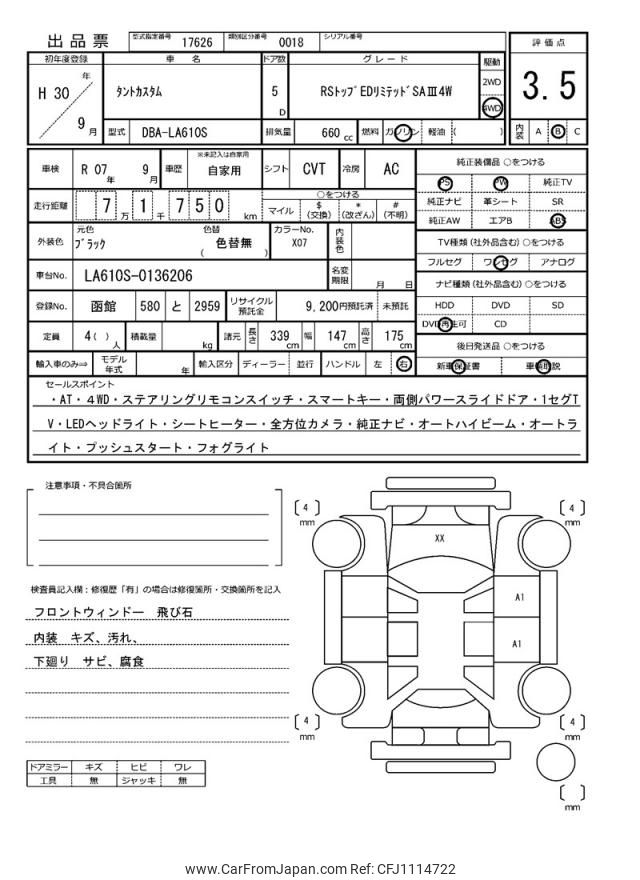 出品票 型式指定番号 17626 類別区分番号 0018 シリアル番号
評価点
3.5
内装 A B C
初年度登録 車名 ドア数 グレード 駆動
H 30 年 9 月
タントカスタム 5 D RSトップEDリミテッドSAⅢ4W
2WD
4WD
型式 DBA-LA610S 排気量 660 cc 燃料 ガソリン 軽油 ( )
車検 R 07 年 9 月 車歴 ※未記入は自家用 自家用 シフト CVT 冷房 AC
走行距離 7 万 1 千 7 5 0 km
○をつける
マイル $(交換) *(改ざん) #(不明)
外装色 元色 ブラック 色替 ( 色替無 ) カラーNo. X07 内装色
車台No. LA610S-0136206 名変期限 月 日
登録No. 函館 580 と 2959 リサイクル預託金 9,200円預託済 未預託
定員 4( )人 積載量 kg 諸元 長さ 339 cm 幅 147 cm 高さ 175 cm
輸入車のみ⇒ モデル年式 年 輸入区分 ディーラー 並行 ハンドル 左 右
純正装備品 ○をつける
PS PW 純正TV
純正ナビ 革シート SR
純正AW エアB ABS
TV種類(社外品含む)○をつける
フルセグ ワンセグ アナログ
ナビ種類(社外品含む)○をつける
HDD DVD SD
DVD再生可 CD
後日発送品 ○をつける
新車保証書 車輌取説
セールスポイント
・AT・4WD・ステアリングリモコンスイッチ・スマートキー・両側パワースライドドア・1セグT
V・LEDヘッドライト・シートヒーター・全方位カメラ・純正ナビ・オートハイビーム・オートラ
イト・プッシュスタート・フォグライト
注意事項・不具合箇所
検査員記入欄:修復歴「有」の場合は修復箇所・交換箇所を記入
フロントウィンドー 飛び石
内装 キズ、汚れ、
下廻り サビ、腐食
ドアミラー キズ ヒビ ワレ
工具 無 ジャッキ 無
[4] mm
[4] mm
XX
A1
A1
[4] mm
[4] mm
[ ] mm
www.CarFromJapan.com Ref: CFJ1114722